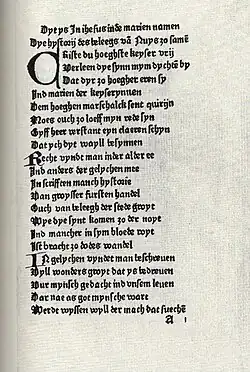 Dyt ys Jn ihesus inde marien namen
Dye hystorij des beleegs vā Nuys zo samē
Criste du hoeghste keyser vrij
Verleen dye synn mym dychtē by
Dat dyr zo hoegher eren sy
Jnd marien der keyserynnen
Dem hoeghen marschalck sent quirijn
Moes ouch zo loeff myn rede syn
Gyff heer verstant eyn claeren schyn
Dat ych dye wayll besynnen
Recht vyndt man in der alder ee
Jnd anders der gelychen mee
Jn scrifften manch hystorie
Van groysser fursten handel
Ouch van beleegh der stede groyt
Wye dye synt komen zo der noyt
Jnd mancher in sym bloede royt
Jst bracht zo dodes wandel
Jn gelychen vyndet man beschreuen
Vyll wonders groyt dat ys bedreuen
Nur mynsch gedacht ind vnsem leuen
Dar nae as got mynsche wart
Werde wyssen wyll der mach dat suechē
a 1